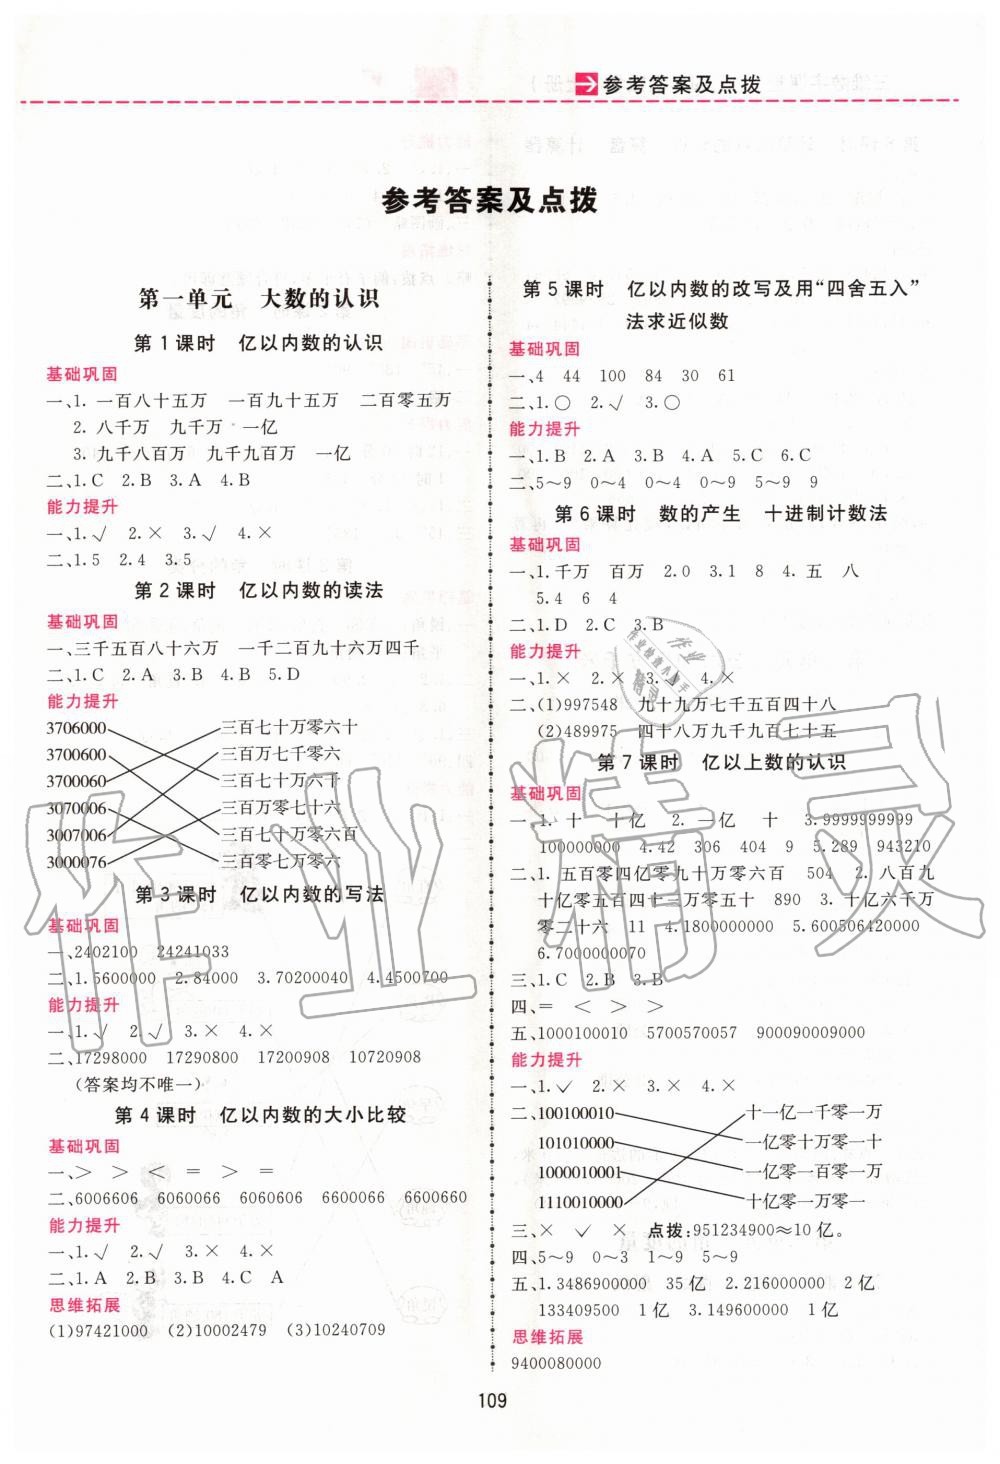 参考答案及点拨
参考答案及点拨
第一单元 大数的认识
第1课时 亿以内数的认识
基础巩固
一、1. 一百八十五万 一百九十五万 二百零五万
2. 八千万 九千万 一亿
3. 九千八百万 九千九百万 一亿
二、1.C 2.B 3.A 4.B
能力提升
一、1.√ 2.× 3.√ 4.×
二、1.5 2.4 3.5
第2课时 亿以内数的读法
基础巩固
一、三千五百八十六万 一千二百九十六万四千
二、1.C 2.A 3.B 4.B 5.D
能力提升
3706000 三百七十万零六十
3700600 三百万七千零六
3700060 三百七十万六千
3070006 三百万零七十六
3007006 三百七十万零六百
3000076 三百零七万零六
第3课时 亿以内数的写法
基础巩固
一、2402100 24241033
二、1.5600000 2.84000 3.70200040 4.4500700
能力提升
一、1.√ 2.√ 3.× 4.×
二、17298000 17290800 17200908 10720908
(答案均不唯一)
第4课时 亿以内数的大小比较
基础巩固
一、> > < = > >
二、6006606 6060066 6060606 6600066 6600660
能力提升
一、1.√ 2.√ 3.× 4.×
二、1.A 2.B 3.B 4.C A
思维拓展
(1)97421000 (2)10002479 (3)10240709
第5课时 亿以内数的改写及用“四舍五入”
法求近似数
基础巩固
一、4 44 100 84 30 61
二、1.○ 2.√ 3.○
能力提升
一、1.B 2.A 3.B 4.A 5.C 6.C
二、5～9 0～4 0～4 0～9 5～9 9
第6课时 数的产生 十进制计数法
基础巩固
一、1.千万 百万 2.0 3.1 8 4.五 八
5.4 6 4
二、1.D 2.C 3.B
能力提升
一、1.× 2.× 3.√ 4.×
二、(1)997548 九十九万七千五百四十八
(2)489975 四十八万九千九百七十五
第7课时 亿以上数的认识
基础巩固
一、1.十 十亿 2.一亿 十 3.9999999999
100000000 4.42 306 404 9 5.289 943210
二、1.五百零四亿零九十万零六百 504 2.八百九
十亿零五百四十三万零五十 890 3.十亿六千万
零二十六 11 4.1800000000 5.600506420000
6.7000000070
三、1.C 2.B 3.B
四、= < > >
五、1000100010 5700570057 900090009000
能力提升
一、1.√ 2.× 3.× 4.×
二、100100010 十一亿一千零一万
101010000 一亿零十万零一十
1000010001 一亿零一百零一万
1110010000 十亿零一万零一
三、× √ × 点拨:951234900≈10亿.
四、5～9 0～3 1～9 5～9
五、1.3486900000 35亿 2.216000000 2亿
133409500 1亿 3.149600000 1亿
思维拓展
9400080000
109
作业精灵
作业
作业快查小助手
精灵